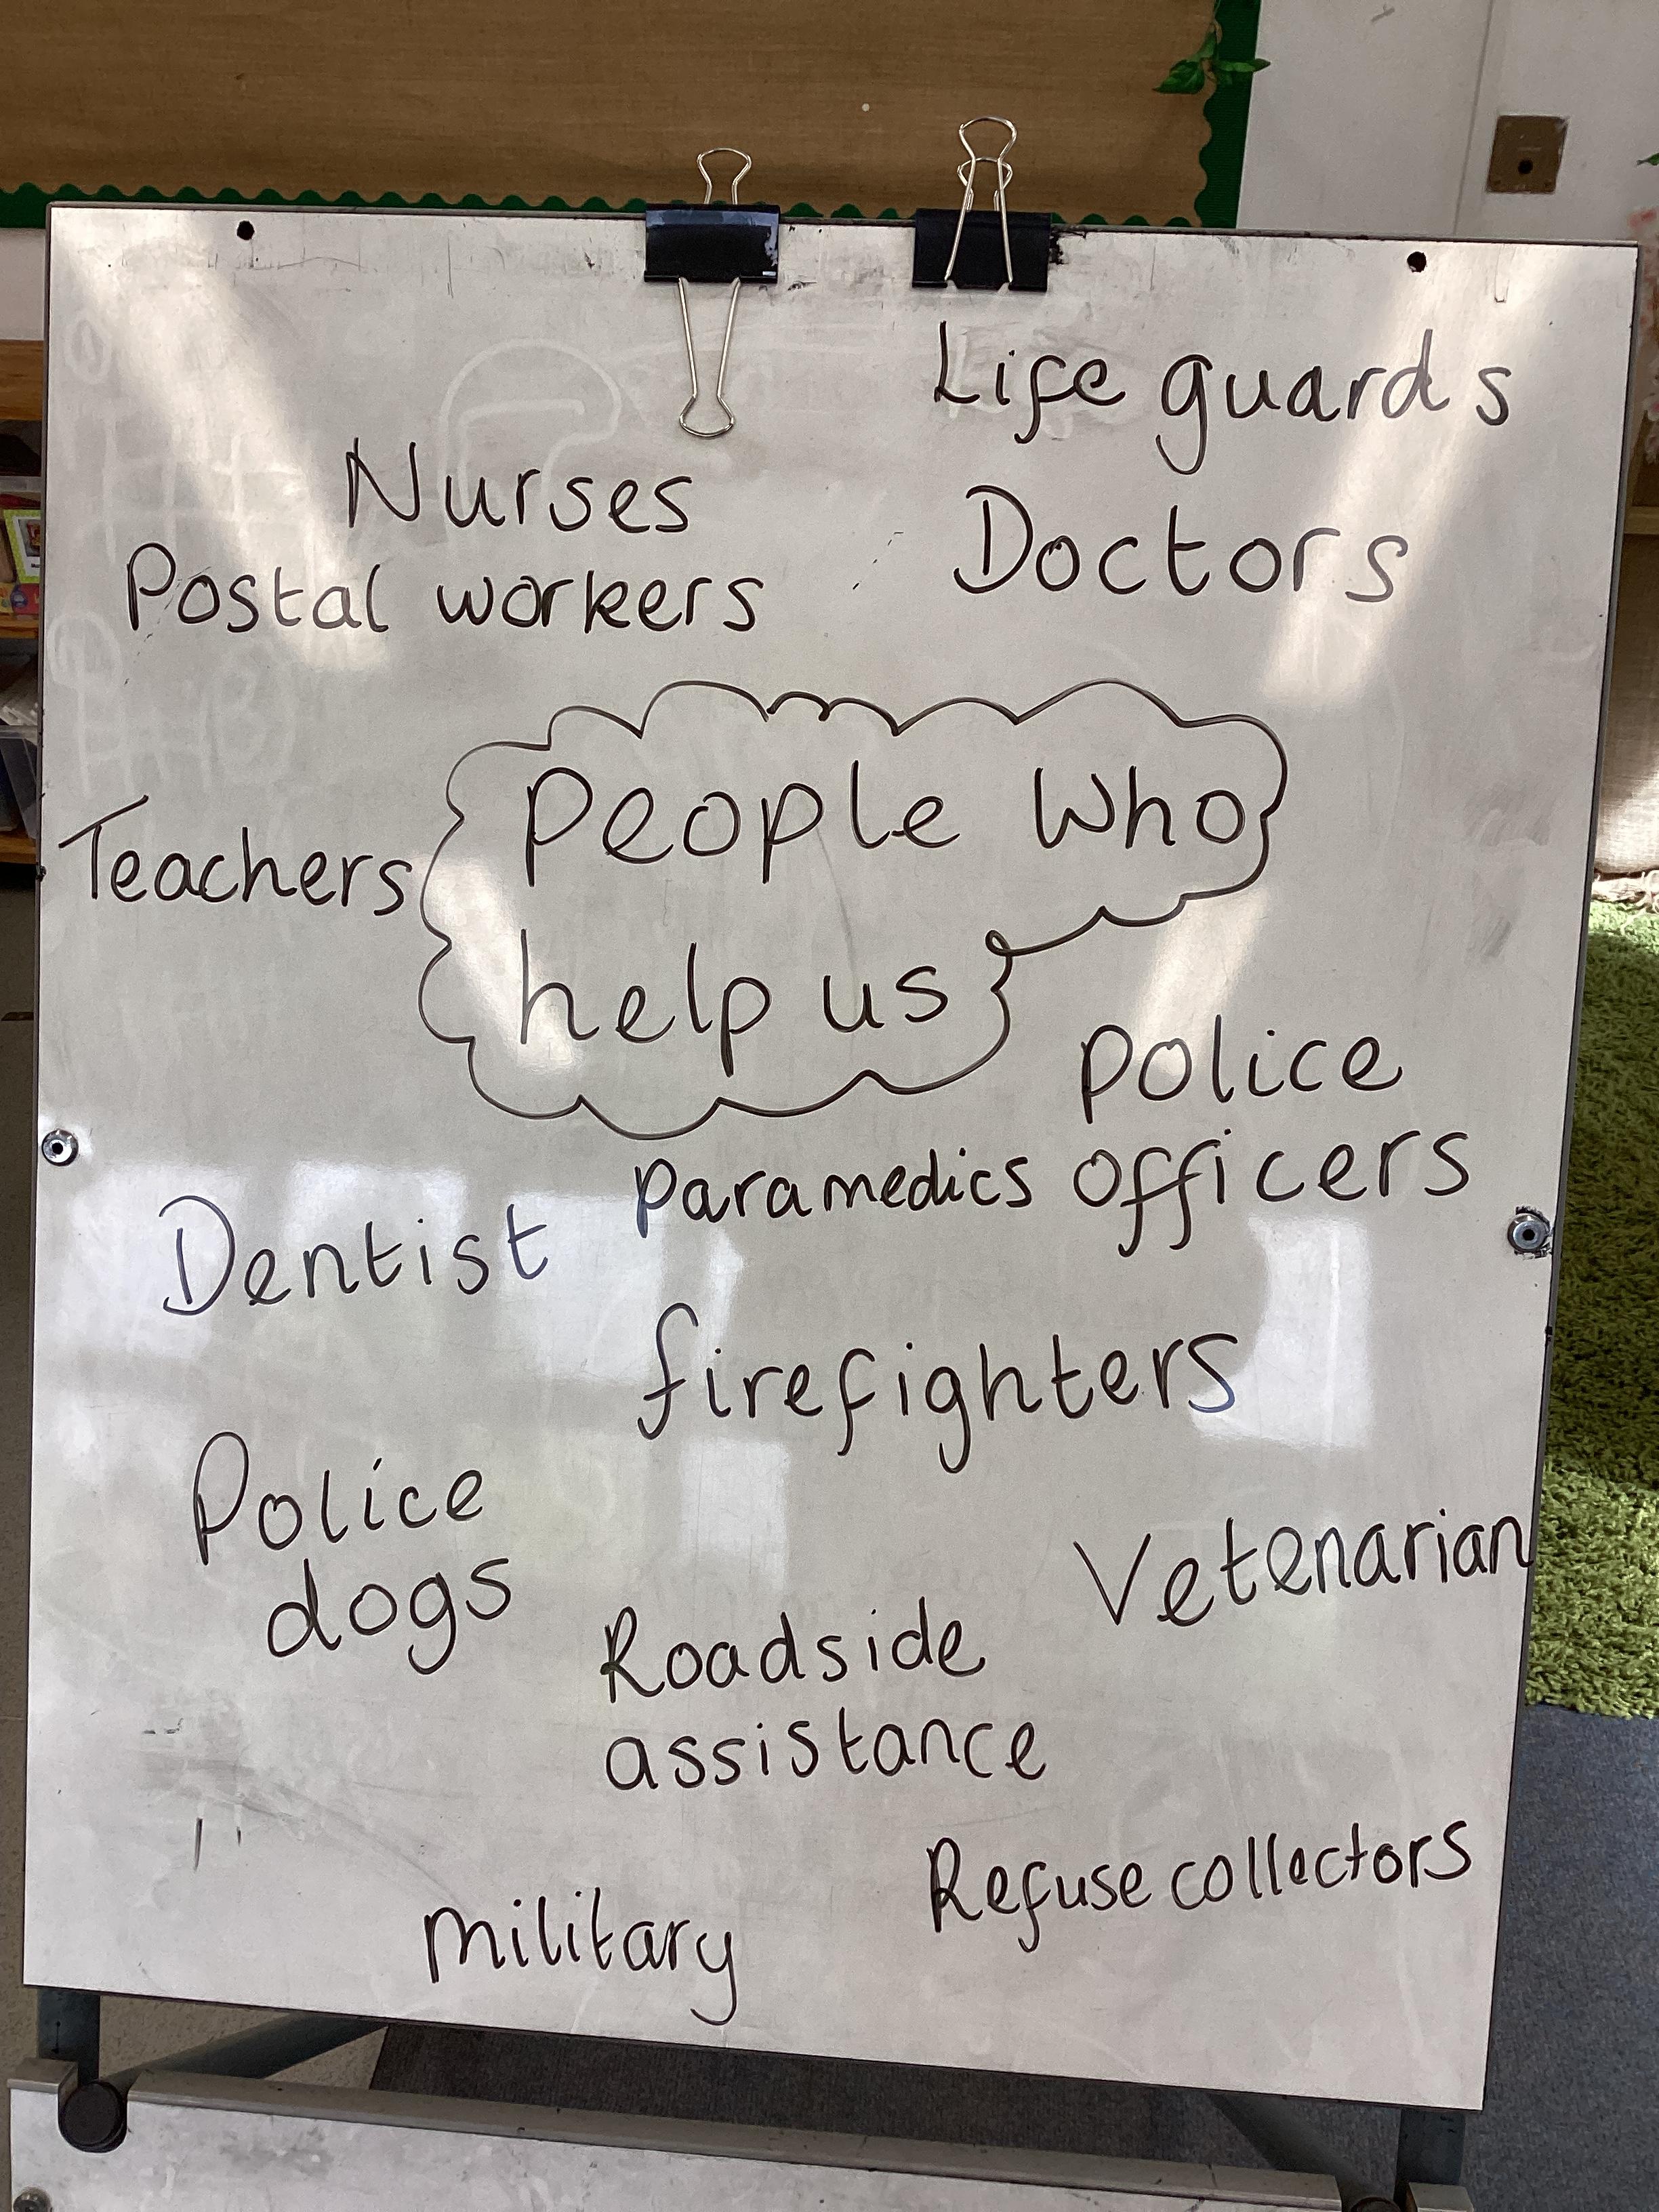 Life guards
Nurses
Doctors
Postal workers
People Who
help us
Teachers
police
officers
paramedics
Dentist
firefighters
Police
dogs
Vetenarian
Roadside
assistance
Refuse collectors
military